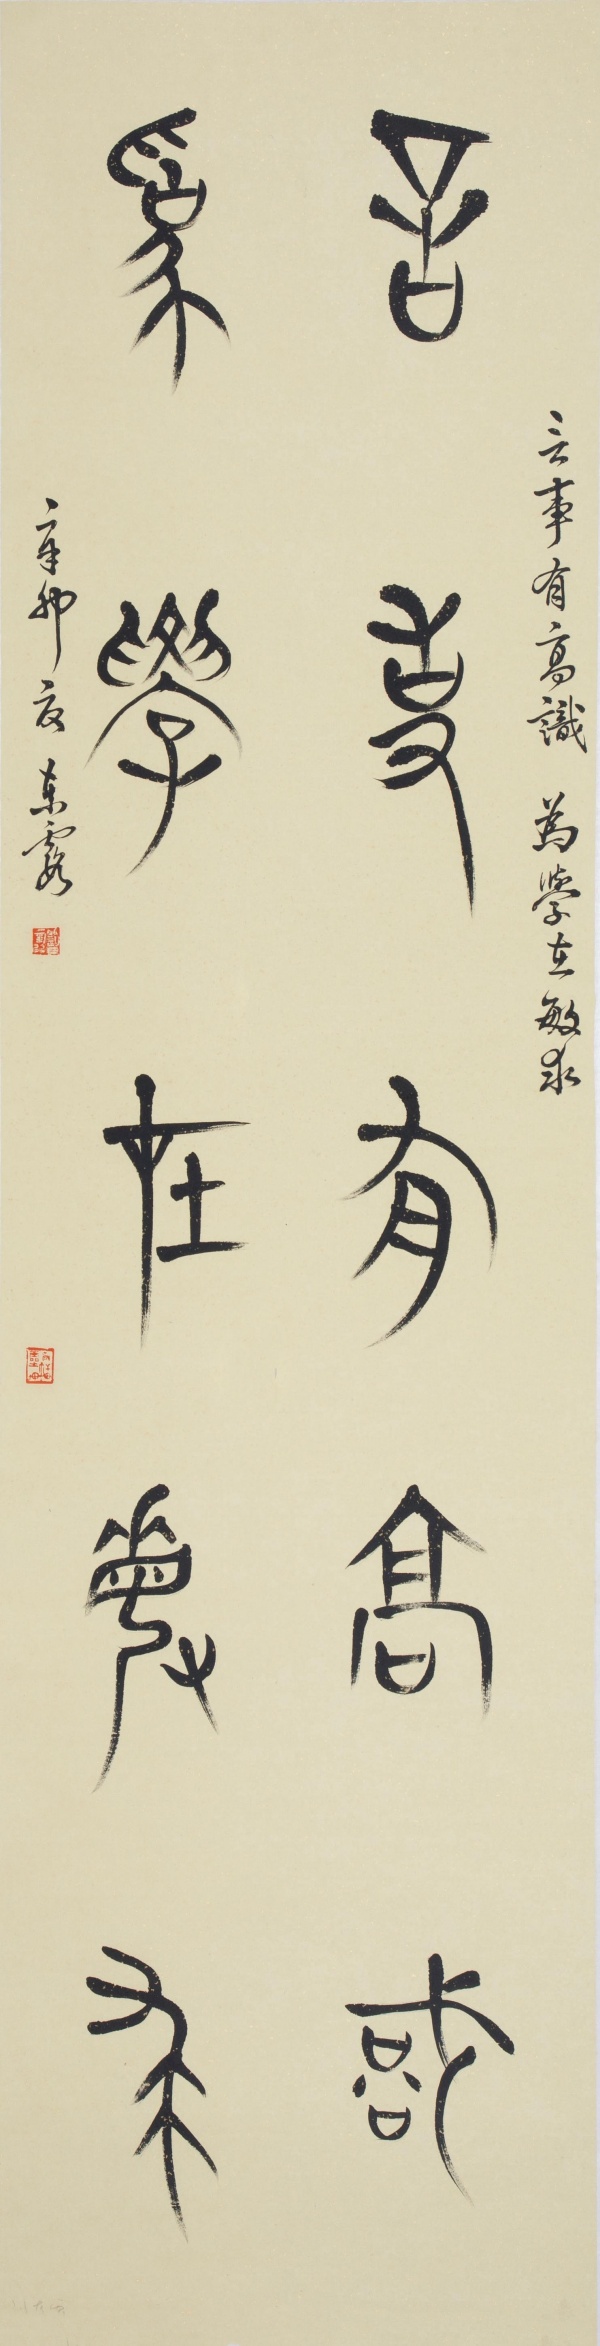 言事有高識 為學在敏求
言事有高識
為學在敏求
辛卯夏